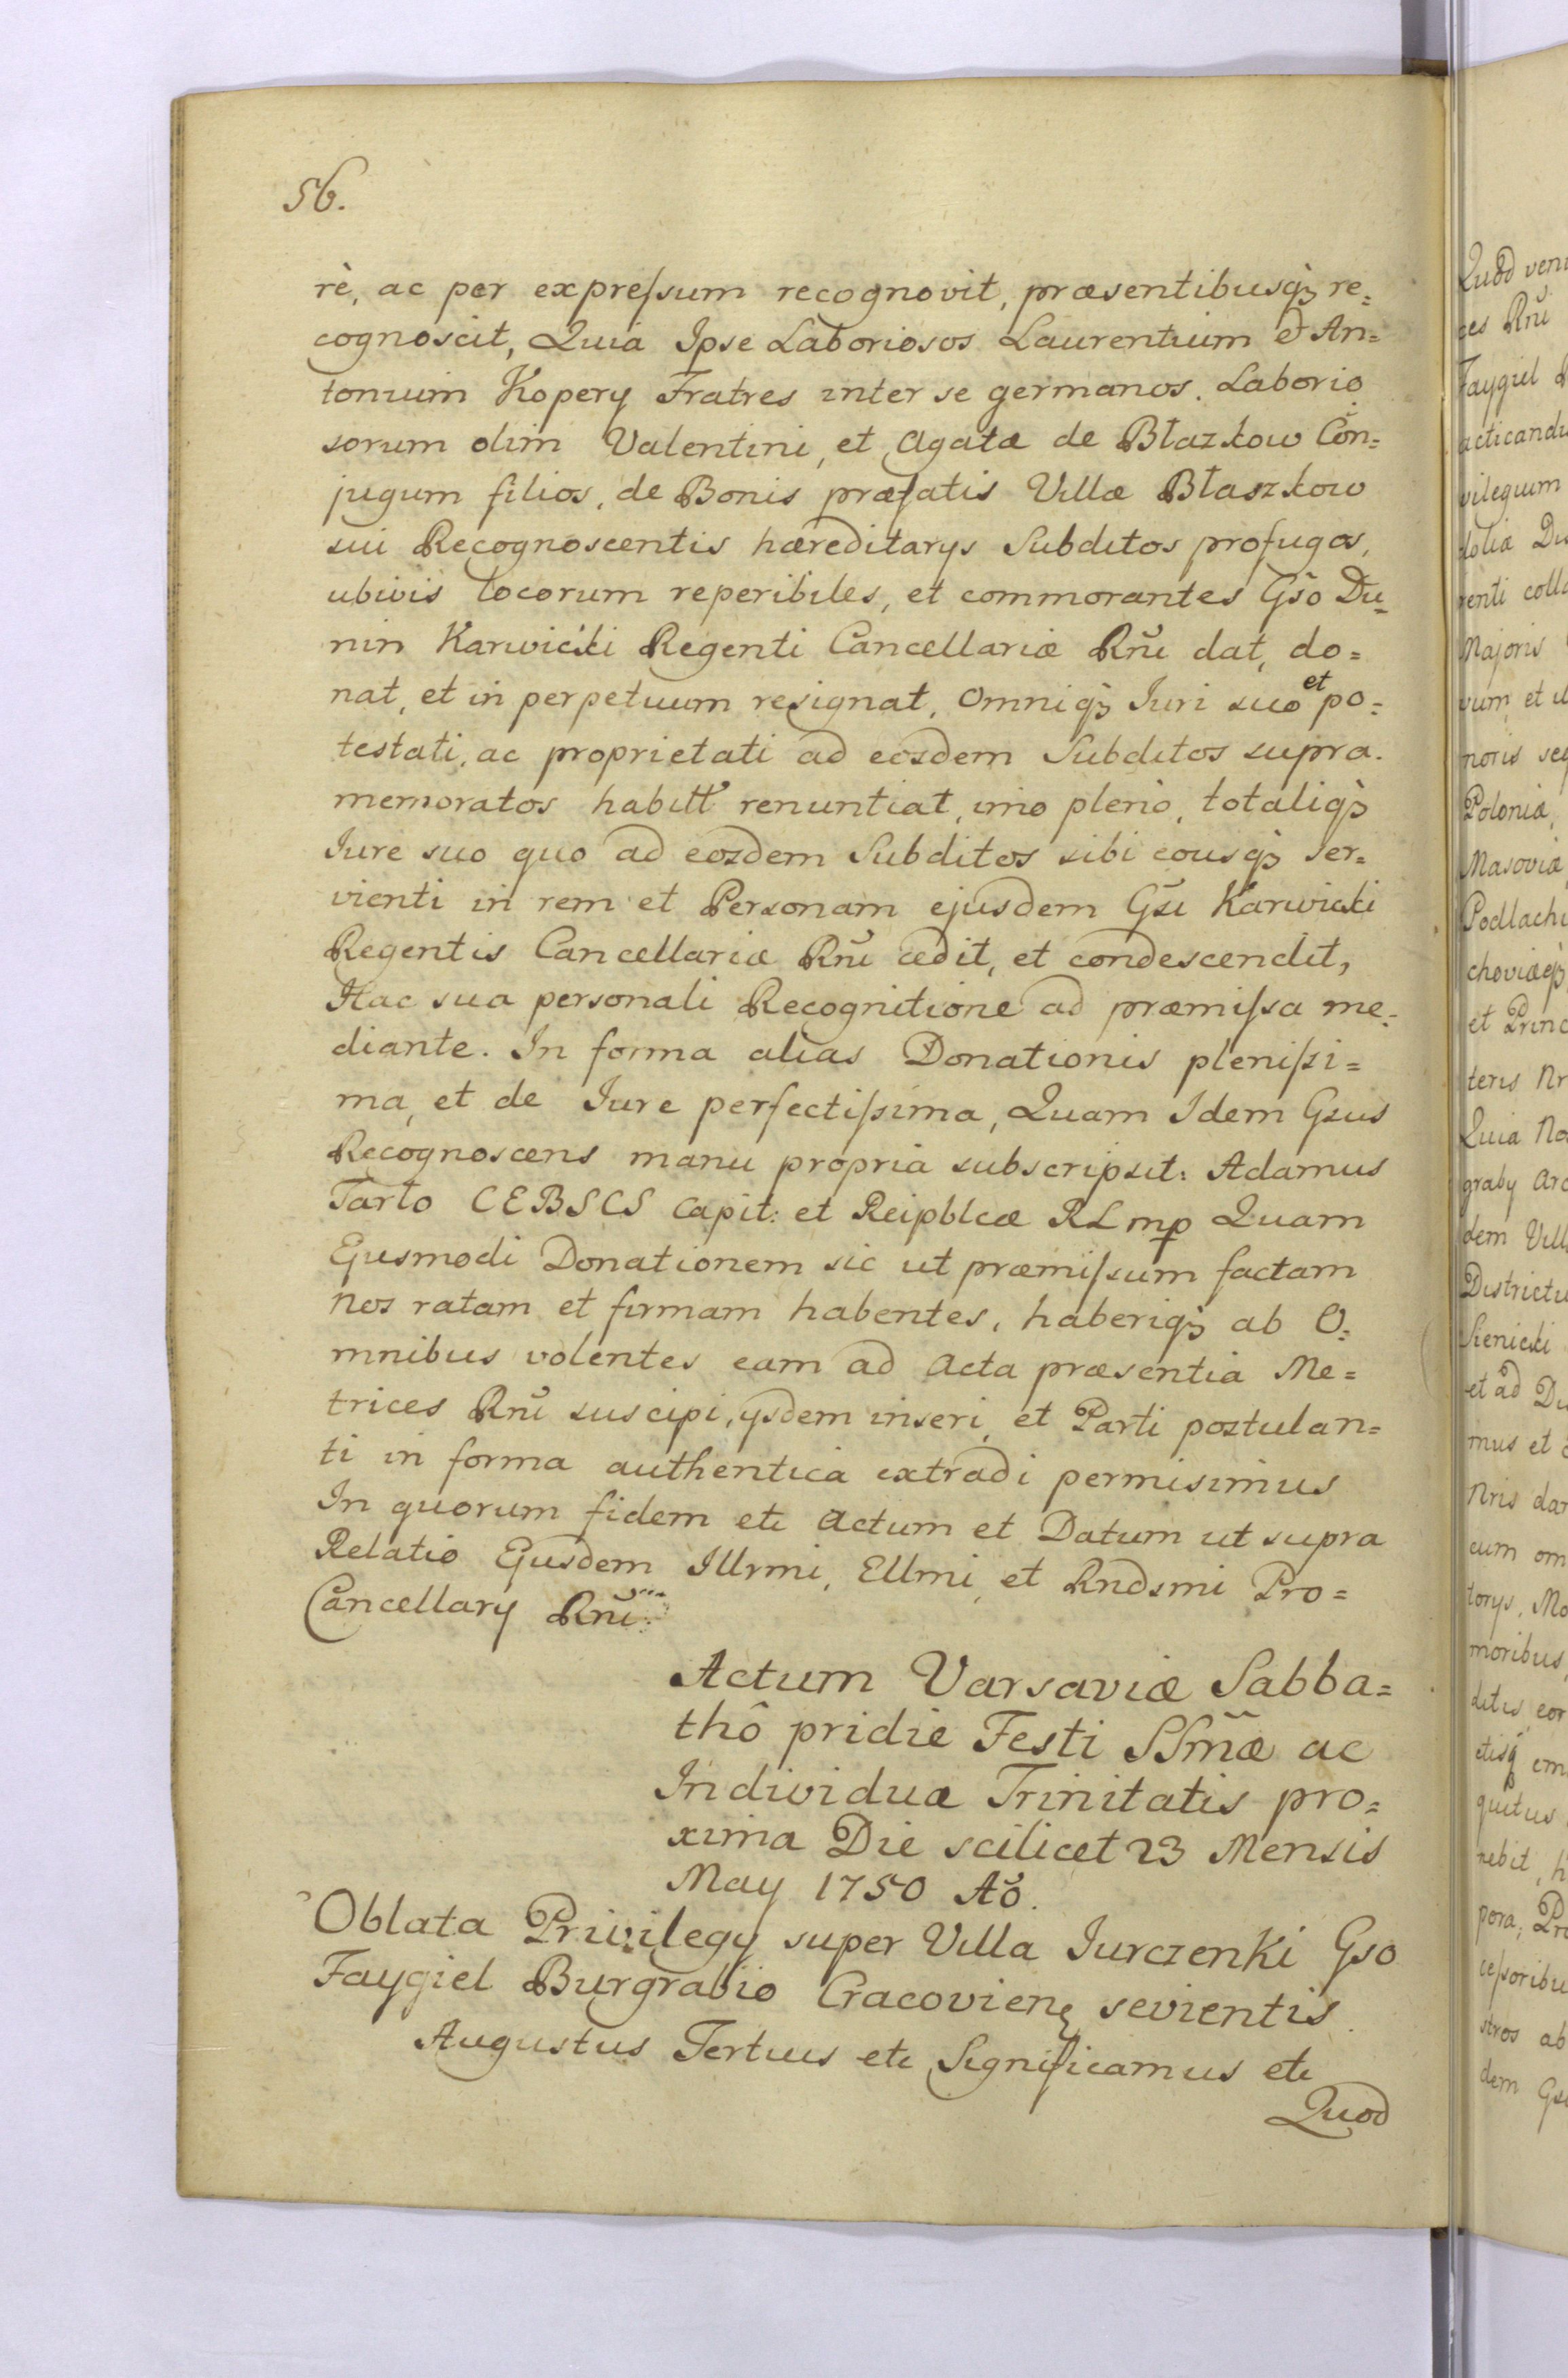 56.
rè, ac per expreſsum recognovit, præsentibusq̀ȝ re=
cognoscit, Quia Ipse Laboriosos Laurentium et An=
tonium Kopery Fratres inter se germanos. Laborio
sorum olim Valentini, et Agatæ de Błazkow Con=
jugum filios, de Bonis præfatis Villæ Błaszkow
sui Recognoscentis hæreditarys Subditos profugos,
ubivis locorum reperibiles, et commorantes Gso Du=
nin Karwicki Regenti Cancellariæ Rñi dat, do=
nat, et in perpetuum resignat, Omniq̀ȝ Iuri suo et po=
testati, ac proprietati ad eosdem Subditos supra.
memoratos habitt renuntiat, imo pleno, totaliq̀ȝ
Iure suo quo ad eosdem Subditos sibi eousq̀ȝ ser=
vienti in rem et Personam ejusdem Gsi Karwicki
Regentis Cancellariæ Rñi cedit, et condescendit,
Hac sua personali Recognitione ad præmiſsa me=
diante. In forma alias Donationis pleniſsi=
ma, et de Iure perfectiſsima, Quam Idem Gsus
Recognoscens manu propria subscripsit: Adamus
Tarło CEBSCS Capit: et Reipblcæ RLmp Quam
Ejusmodi Donationem sic ut præmiſsum factam
Nos ratam et firmam habentes, haberiq̀ȝ ab O=
mnibus volentes eam ad Acta præsentia Me=
trices Rñi suscipi, ysdem inseri, et Parti postulan=
ti in forma authentica extradi permisimus
In quorum fidem etc Actum et Datum ut supra
Relatio Ejusdem Illrmi, Ellmi, et Rndsmi Pro=
Cancellary Rñi
Actum Varsaviæ Sabba=
thô pridie Festi SSm̃æ ac
Individuæ Trinitatis pro=
xima Die scilicet 23 Mensis
May 1750 Ao.
Oblata Privilegy super Villa Iurczenki Gso
Faygiel Burgrabio Cracovienȩ sevientis.
Augustus Tertius etc Significamus etc
Quod